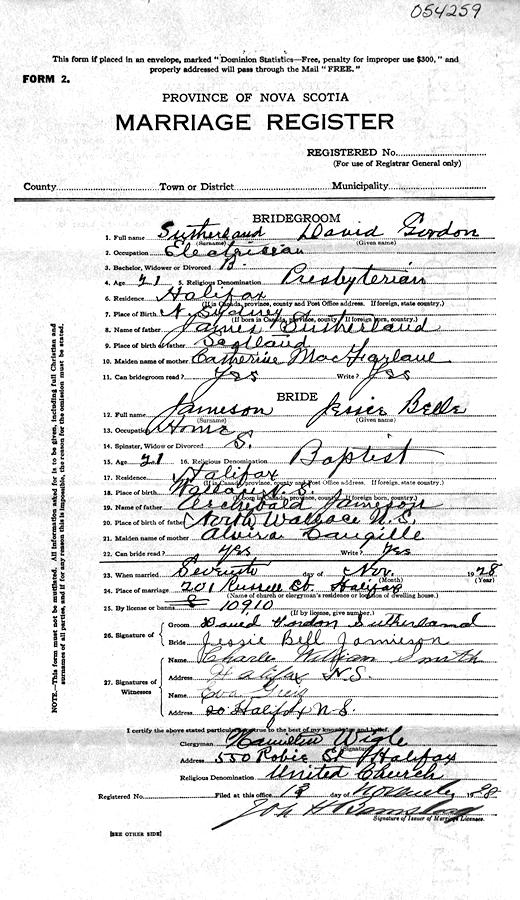 054259
This form if placed in an envelope, marked "Dominion Statistics—Free, penalty for improper use $300," and
properly addressed will pass through the Mail "FREE."
FORM 2.
PROVINCE OF NOVA SCOTIA
MARRIAGE REGISTER
REGISTERED No.
(For use of Registrar General only)
County Town or District Municipality
BRIDEGROOM
1. Full name Sutherland David Gordon
(Surname) (Given name)
2. Occupation Electrician
3. Bachelor, Widower or Divorced B.
4. Age 21 5. Religious Denomination Presbyterian
6. Residence Halifax
(If in Canada, province, county and Post Office address. If foreign, state country.)
7. Place of Birth N. Sydney
(If born in Canada, province, county and Post Office address. If foreign born, country.)
8. Name of father James Sutherland
9. Place of birth of father Scotland
10. Maiden name of mother Catherine MacFarlane
11. Can bridegroom read? Yes Write? Yes
BRIDE
12. Full name Jameson Jessie Belle
(Surname) (Given name)
13. Occupation Home
14. Spinster, Widow or Divorced S.
15. Age 21 16. Religious Denomination Baptist
17. Residence Halifax
(If in Canada, province, county and Post Office address. If foreign, state country.)
18. Place of birth Wallace N.S.
(If born in Canada, province, county and Post Office address. If foreign born, country.)
19. Name of father Archebald Jameson
20. Place of birth of father North Wallace N.S.
21. Maiden name of mother Alvira
22. Can bride read? Yes Write? Yes
23. When married Seventh day of Nov. 1928
(Month) (Year)
24. Place of marriage 201 Russell St. Halifax
(Name of church or clergyman's residence or location of dwelling house.)
25. By license or banns 10910
(If by license, give number.)
26. Signature of
Groom David Gordon Sutherland
Bride Jessie Bell Jamieson
27. Signatures of Witnesses
Name Charles William Smith
Address Halifax N.S.
Name Eva
Address Halifax N.S.
I certify the above stated particulars are true to the best of my knowledge and belief.
Clergyman Hamilton Wigle
(Signature)
Address 550 Robie St Halifax
Religious Denomination United Church
Registered No. Filed at this office 13 day of November 1928
Signature of Issuer of Marriage Licenses.
[SEE OTHER SIDE]
NOTE.—This form must not be mutilated. All information asked for is to be given, including full Christian and
surnames of all parties, and if for any reason this is impossible, the reason for the omission must be stated.